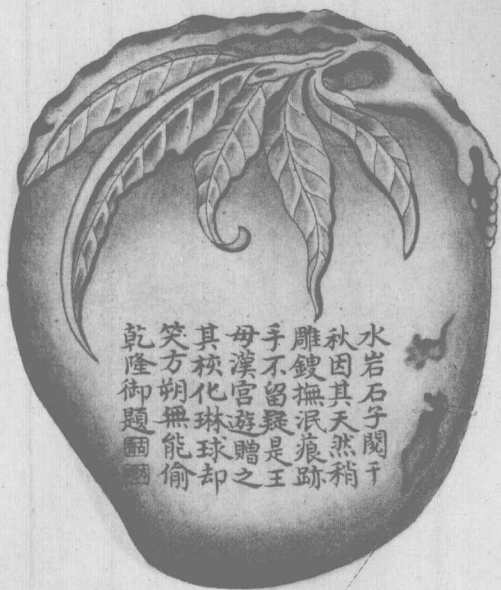 水岩石子閱千
秋因其天然稍
雕鎪撫泯痕跡
手不留疑是王
母漢宮遊贈之
其核化琳球却
笑方朔無能偷
乾隆御題